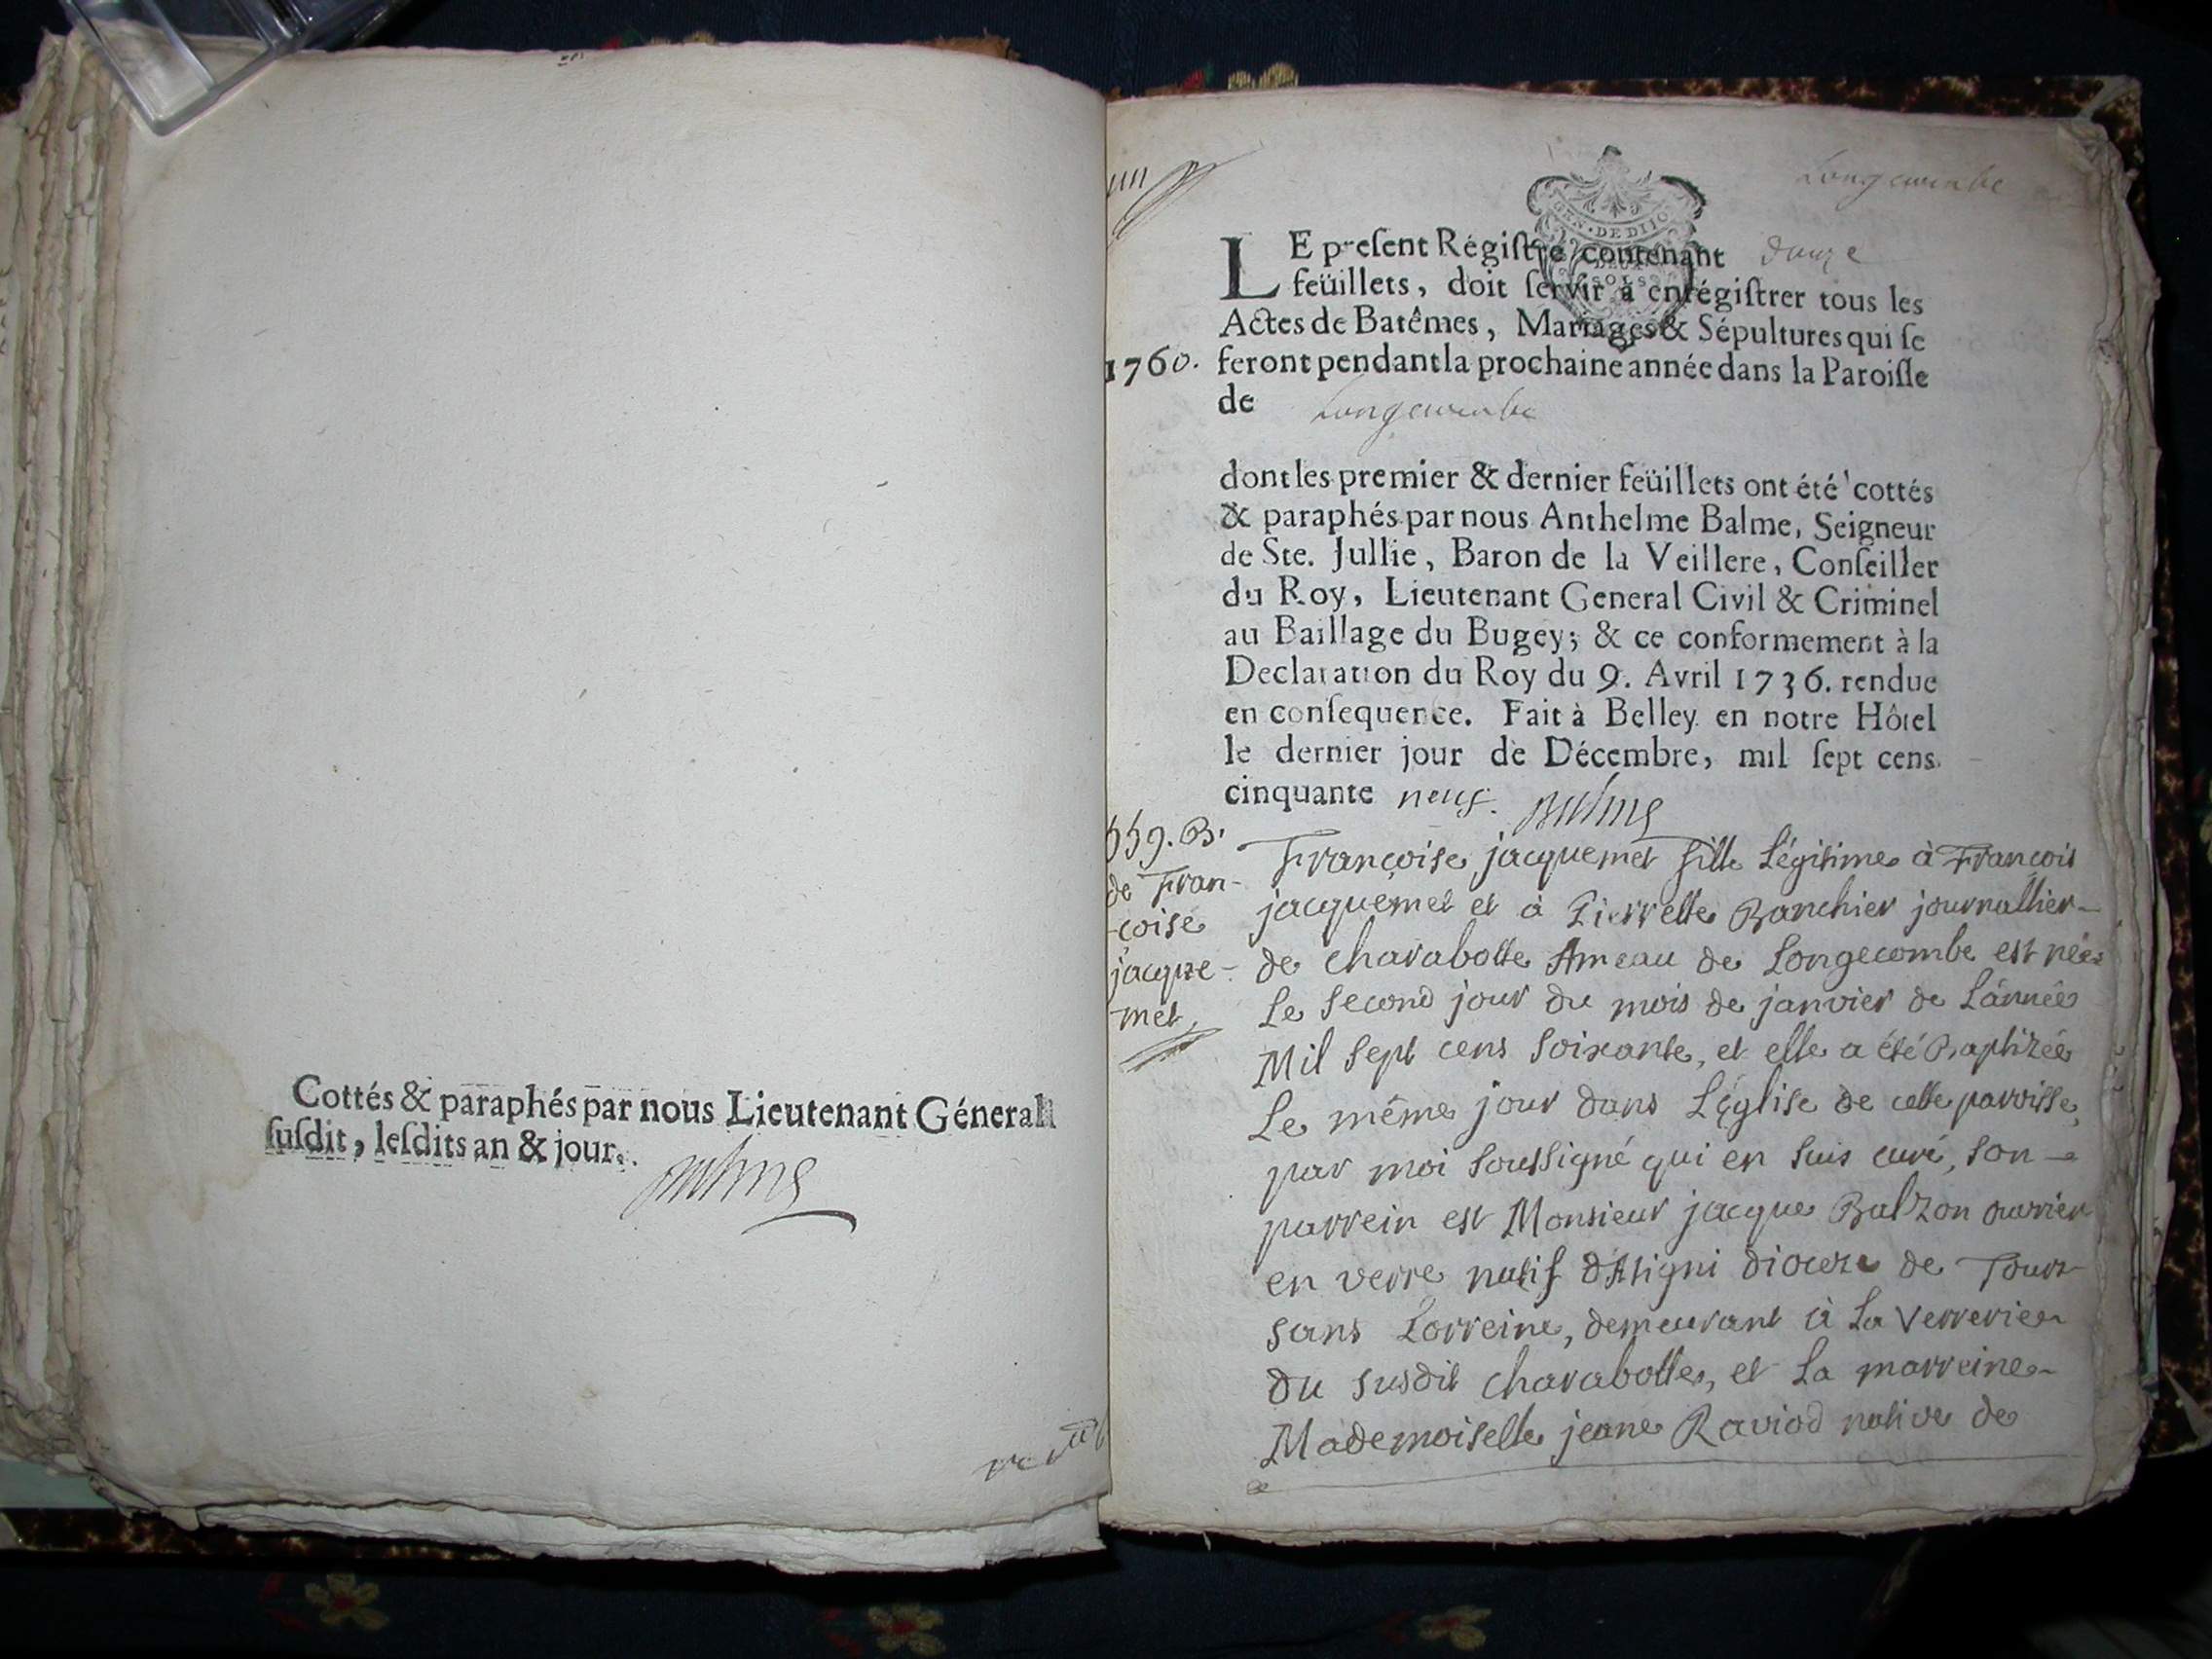 Cottés & paraphés par nous Lieutenant Géneral
ſuſdit, leſdits an & jour.
Balme
Longecombe
GEN. DE DIJO
LE preſent Régiſtre contenant douze
feüillets, doit ſervir à enrégiſtrer tous les
Actes de Batêmes, Mariages & Sépultures qui ſe
1760. feront pendant la prochaine année dans la Paroiſſe
de Longecombe
dont les premier & dernier feüillets ont été cottés
& paraphés par nous Anthelme Balme, Seigneur
de Ste. Jullie, Baron de la Veillere, Conſeiller
du Roy, Lieutenant General Civil & Criminel
au Baillage du Bugey; & ce conformement à la
Declaration du Roy du 9. Avril 1736. rendue
en conſequence. Fait à Belley en notre Hôtel
le dernier jour de Décembre, mil ſept cens
cinquante neuf. Balme
559. B.
de Fran-
-çoise
jacque-
met
Françoise jacquemet fille Légitime à François
jacquemet et à Pierrette Banchier journallier
de charabotte Ameau de Longecombe est née
Le second jour du mois de janvier de L'année
Mil sept cens soixante, et elle a été Baptizée
Le même jour dans L'église de cette paroisse,
par moi soussigné qui en suis curé, son
parrein est Monsieur jacque Balzon ouvrier
en verre natif d'Atigni dioceze de Tour
sans Lorreine, demeurant à La Verrerie
du susdit charabotte, et La marreine
Mademoiselle jeane Raviod native de